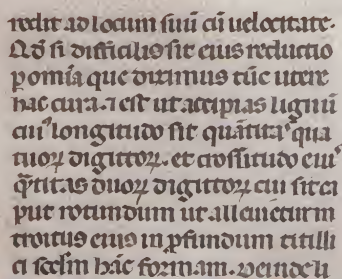 redit ad locum suũ cũ uelocitate.
Qđ si difficilis sit eius reductio
ꝑ omĩa que diximus tũc utere
hac cura. ⁊ est ut accipias lignũ
cuiꝰ longitudo sit quãtitaꝰ qua
tuoꝝ digitoꝝ. et grossitudo eiuꝰ
q̃titas duoꝝ digitoꝝ cui sit ca
put rotundum ut alleuietur in
troitus eius in ꝓfundum titilli
ci scḋm hãc formam. deinde li